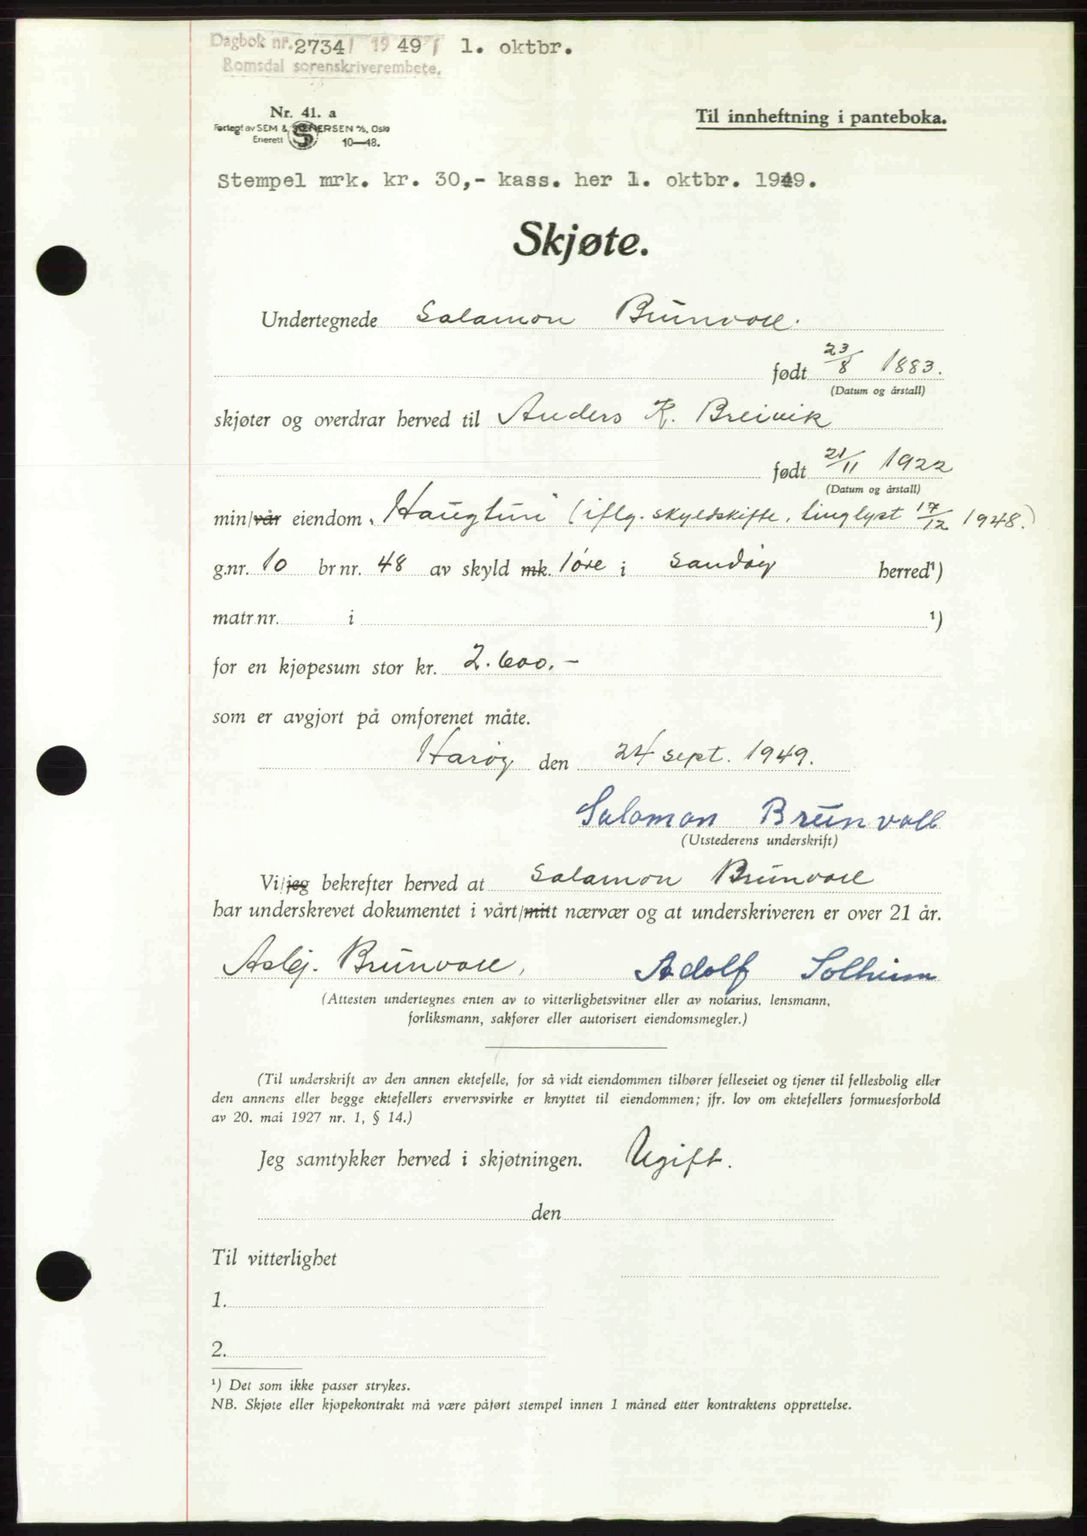 Dagbok nr. 2734 / 1949 / 1. oktbr.
Romsdal sorenskriverembete.
Nr. 41. a
Forlegt av SEM & STENERSEN A/S, Oslo
Enerett 10—48.
Til innheftning i panteboka.
Stempel mrk. kr. 30,- kass. her 1. oktbr. 1949.
Skjøte.
Undertegnede Salamon Brunvoll.
født 23/8 1883.
(Datum og årstall)
skjøter og overdrar herved til Anders K. Breivik
født 21/11 1922
(Datum og årstall)
min/vår eiendom "Haugtun" (iflg. skyldskifte, tinglyst 17/12 1948.)
g.nr. 10 br nr. 48 av skyld mk. 1 øre i Sandøy herred¹)
matr.nr. i ¹)
for en kjøpesum stor kr. 2.600.-
som er avgjort på omforenet måte.
Harøy den 24 sept. 1949.
Salamon Brunvoll
(Utstederens underskrift)
Vi/jeg bekrefter herved at Salamon Brunvoll
har underskrevet dokumentet i vårt/mitt nærvær og at underskriveren er over 21 år.
Asbj. Brunvoll, Adolf Solheim
(Attesten undertegnes enten av to vitterlighetsvitner eller av notarius, lensmann,
forliksmann, sakfører eller autorisert eiendomsmegler.)
(Til underskrift av den annen ektefelle, for så vidt eiendommen tilhører felleseiet og tjener til fellesbolig eller
den annens eller begge ektefellers ervervsvirke er knyttet til eiendommen; jfr. lov om ektefellers formuesforhold
av 20. mai 1927 nr. 1, § 14.)
Jeg samtykker herved i skjøtningen. Ugift.
den
Til vitterlighet
1.
2.
¹) Det som ikke passer strykes.
NB. Skjøte eller kjøpekontrakt må være påført stempel innen 1 måned etter kontraktens opprettelse.